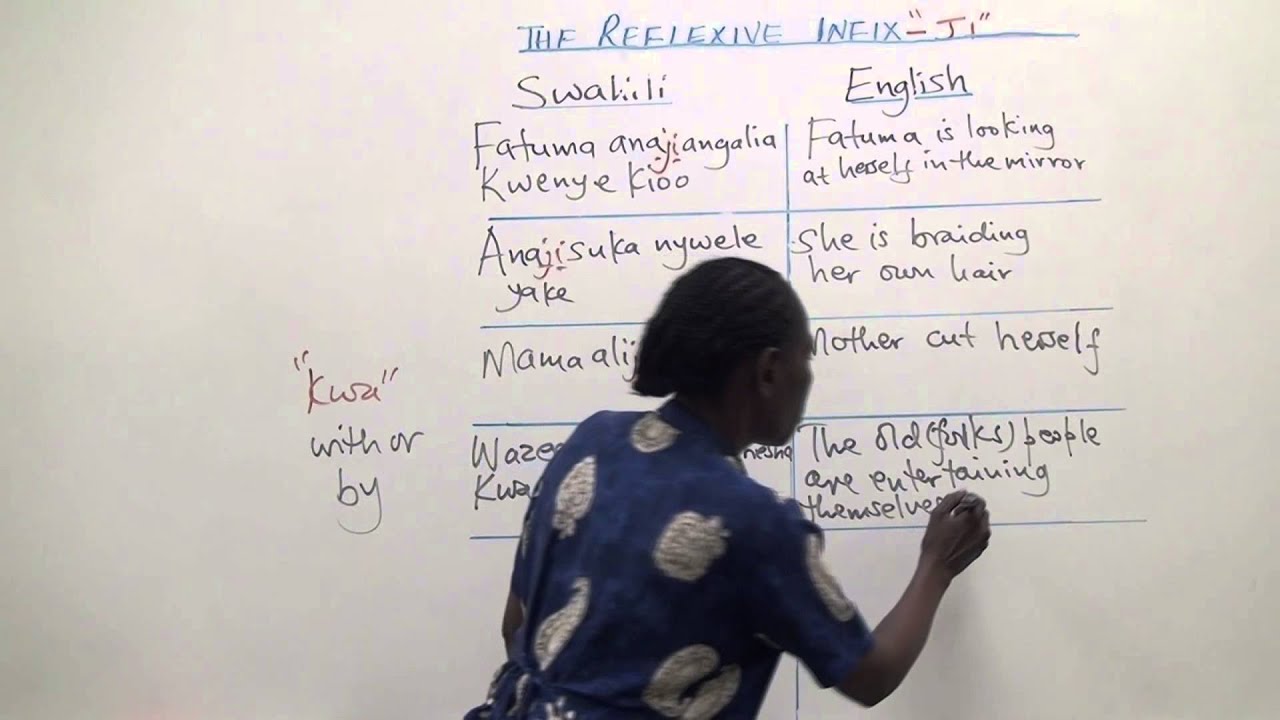 THE REFLEXIVE INFIX "-JI"
Swahili
English
Fatuma anajiangalia
Kwenye Kioo
Fatuma is looking
at herself in the mirror
Anajisuka nywele
yake
She is braiding
her own hair
Mama alij
Mother cut herself
Wazee
Kwa
The old (folks) people
are entertaining
themselves
"Kwa"
with or
by